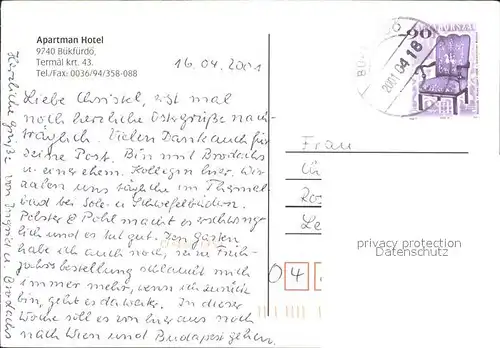 Apartman Hotel
9740 Bükfürdő,
Termál krt. 43.
Tel./Fax: 0036/94/358-088
16.04.2001
Liebe Christel, erst mal
noch herzliche Ostergrüße nach-
träglich. Vielen Dank auch für
Deine Post. Bin mit
u. einer ehem. Kollegin hier. Wir
aalen uns täglich im Thermal-
bad bei Sole- u. Schwefelbädern.
Polster & Pohl macht es erschwing-
lich und es tut gut. Den Garten
habe ich auch noch, seine Früh-
jahrsbestellung schlaucht mich
immer mehr, wenn ich zurück
bin, geht es da weiter. In dieser
Woche soll es von hier aus noch
nach Wien und Budapest gehen.
Herzliche Grüße von u.
Frau
04
90
2001.04.18
privacy protection
Datenschutz